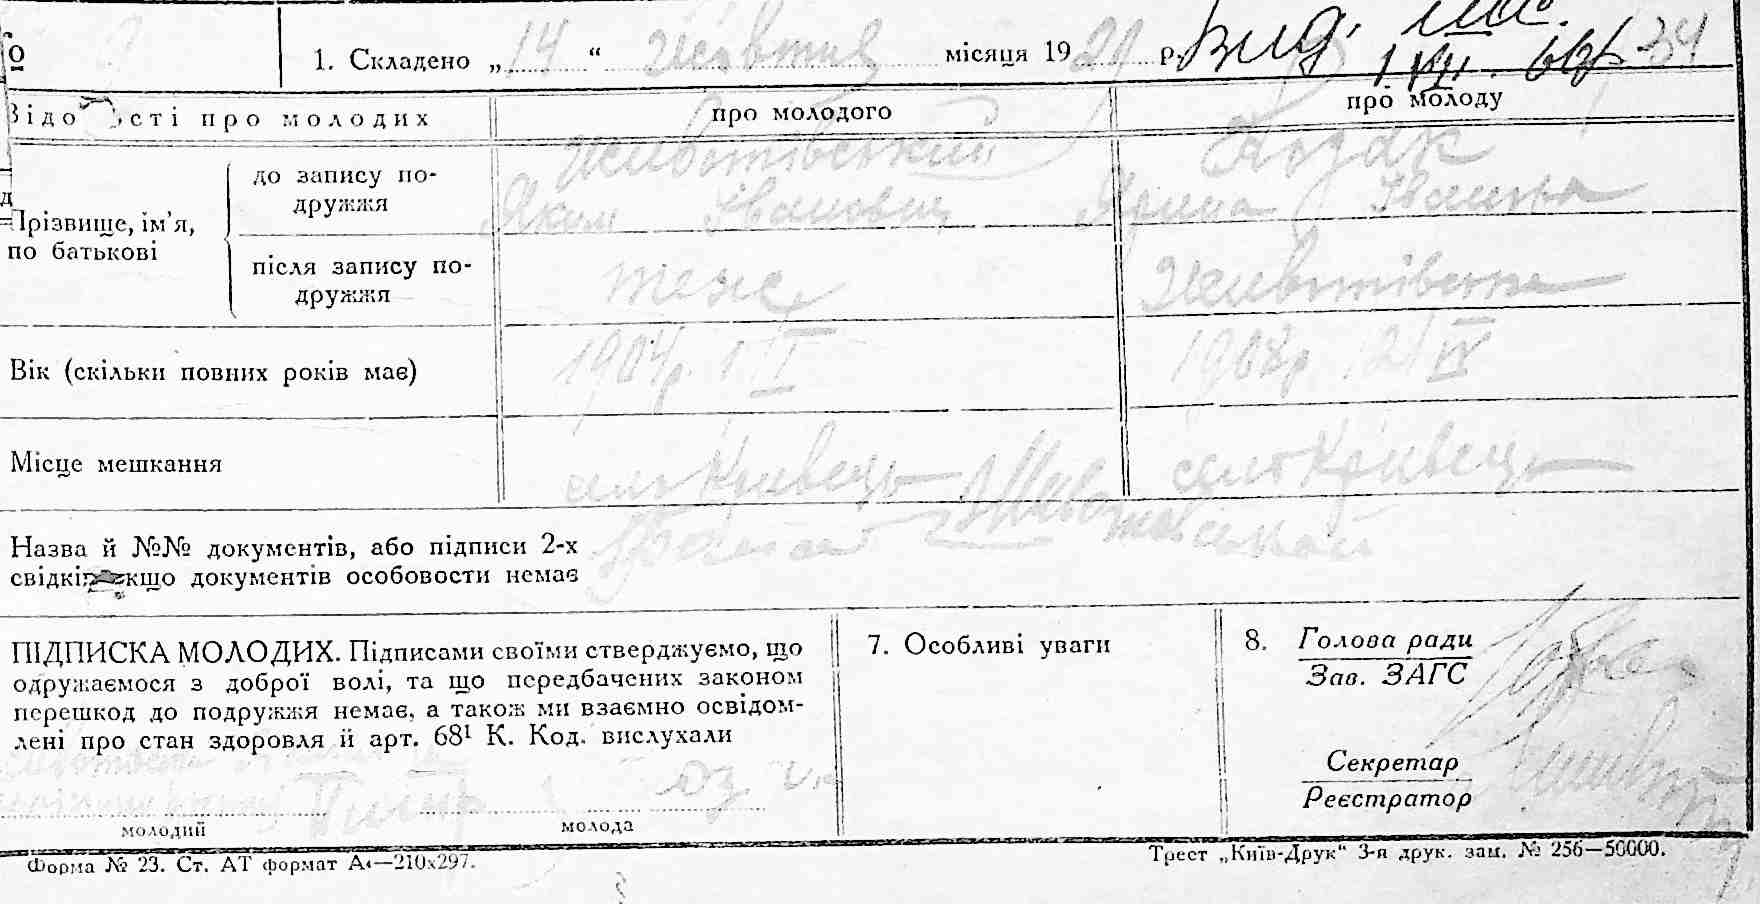 1. Складено „ 14 “ жовтня місяця 1929 р.
Відо ості про молодих про молодого про молоду
Прізвище, ім’я, по батькові
до запису по-
дружжя
Животівський Козак
Яким Іванович Ярина Іванівна
після запису по-
дружжя
теж Животівська
Вік (скільки повних років має) 1904р. 1 I 1908р. 21 IV
Місце мешкання село Кривець село Кривець
Назва й №№ документів, або підписи 2-х
свідків якщо документів особовости немає
ПІДПИСКА МОЛОДИХ. Підписами своїми стверджуємо, що
одружаємося з доброї волі, та що передбачених законом
перешкод до подружжя немає, а також ми взаємно освідом-
лені про стан здоровля й арт. 68¹ К. Код. вислухали
молодий молода
7. Особливі уваги
8. Голова ради
Зав. ЗАГС
Секретар
Реєстратор
Форма № 23. Ст. АТ формат А₄—210х297.
Трест „Київ-Друк“ 3-я друк. зам. № 256—50000.